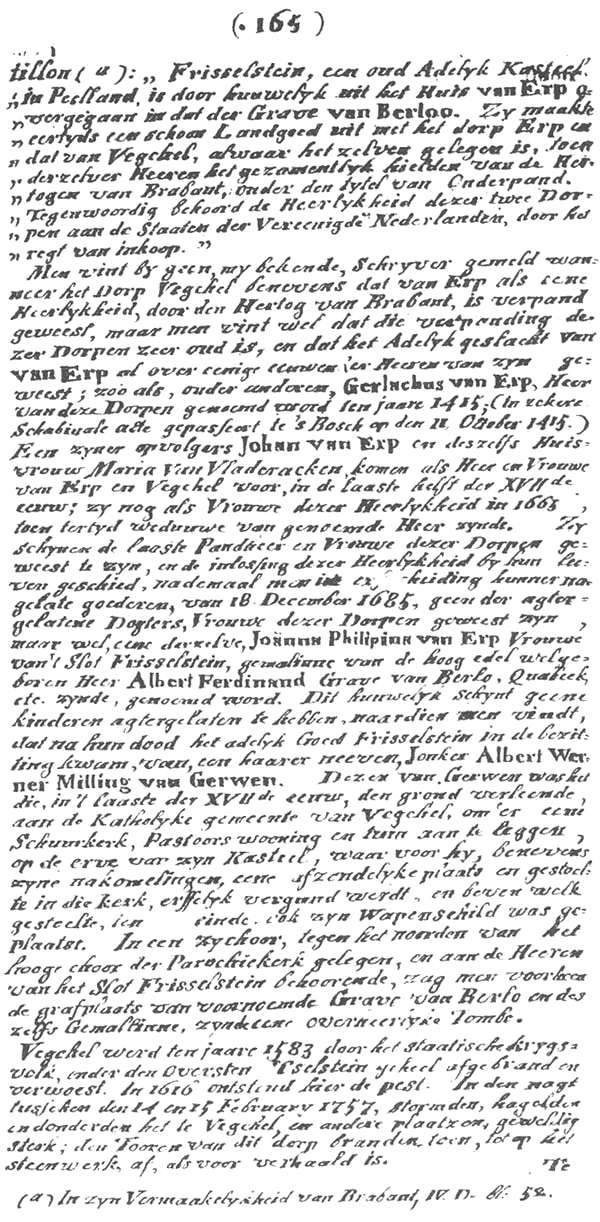 (. 165 )
tillon (a): „ Frisselstein, een oud Adelyk Kasteel
„ in Peelland, is door huwelyk uit het Huis van Erp o-
„ vergegaan in dat der Grave van Berloo. Zy maakte
„ eertyds een schoon Landgoed uit met het dorp Erp en
„ dat van Vegchel, alwaar het zelven gelegen is, toen
„ derzelver Heeren het gezamentlyk hielden van de Her-
„ togen van Brabant, onder den tytel van Onderpand.
„ Tegenwoordig behoord de Heerlykheid dezer twee Dor-
„ pen aan de Staaten der Vereenigde Nederlanden, door het
„ regt van inkoop. ”
Men vint by geen, my bekende, Schryver gemeld wan-
neer het Dorp Vegchel benevens dat van Erp als eene
Heerlykheid, door den Hertog van Brabant, is verpand
geweest, maar men vint wel dat die verpending de-
zer Dorpen zeer oud is, en dat het Adelyk geslacht van
van Erp al over eenige eeuwen 'er Heeren van zyn ge-
weest; zoo als, onder anderen, Gerlachus van Erp, Heer
van deze Dorpen genoemd word ten jaare 1415; (In zekere
Schabinale acte gepasseert te 's Bosch op den 11 October 1415.)
Een zyner opvolgers Johan van Erp en deszelfs Huis-
vrouw Maria Van Vladeracken, komen als Heer en Vrouwe
van Erp en Vegchel voor, in de laaste helft der XVII de
eeuw; zy nog als Vrouwe dezer Heerlykheid in 1665,
toen tertyd weduwe van genoemde Heer zynde. Zy
schynen de laaste Pandheer en Vrouwe dezer Dorpen ge-
weest te zyn, en de inlossing dezer Heerlykheid by hun lee-
ven geschied, nademaal men in kheiding hunner na-
gelate goederen, van 18 December 1685, geen der agter-
gelatene Dogters, Vrouwe dezer Dorpen geweest zyn,
maar wel, eene derzelve, Joanna Philipina van Erp Vrouwe
van't Slot Frisselstein, gemalinne van de hoog edel welge-
boren Heer Albert Ferdinand Grave van Berlo, Quabeek,
etc. zynde, genoemd word. Dit huwelyk schynt geene
kinderen agtergelaten te hebben, naardien men vindt,
dat na hun dood het adelyk Goed Frisselstein in de bezit-
ting kwam, van, een haarer neeven, Jonker Albert Wer-
ner Milling van Gerwen. Dezen van Gerwen was het
die, in 't laaste der XVII de eeuw, den grond verleende,
aan de Katholyke gemeente van Vegchel, om'er eene
Schuurkerk, Pastoors wooning en tuin aan te leggen,
op de erve var zyn Kasteel, waar voor hy, benevens
zyne nakomelingen, eene afzendelyke plaats en gestoel-
te in die kerk, erffelyk vergund werdt, en boven welk
gestoelte, ten einde, ook zyn Wapenschild was ge-
plaatst. In een zychoor, tegen het noorden van het
hooge choor der Parochiekerk gelegen, en aan de Heeren
van het Slot Frisselstein behoorende, zag men voorheen
de grafplaats van voornoemde Grave van Berlo en des
zelfs Gemallinne, zynde eene overheerlyke Tombe.
Vegchel werd ten jaare 1583 door het staatische krygs-
volk, onder den Oversten Yselstein geheel afgebrand en
verwoest. In 1616 ontstond hier de pest. In den nagt
tusschen den 14 en 15 February 1757, stormden, hagelden
en donderden het te Vegchel, en andere plaatzen, geweldig
sterk; den Tooren van dit dorp branden, toen, tot op het
steenwerk, af, als voor verhaald is. Te
(a) In zyn Vermaakelykheid van Brabant, IV. D. bl. 52.